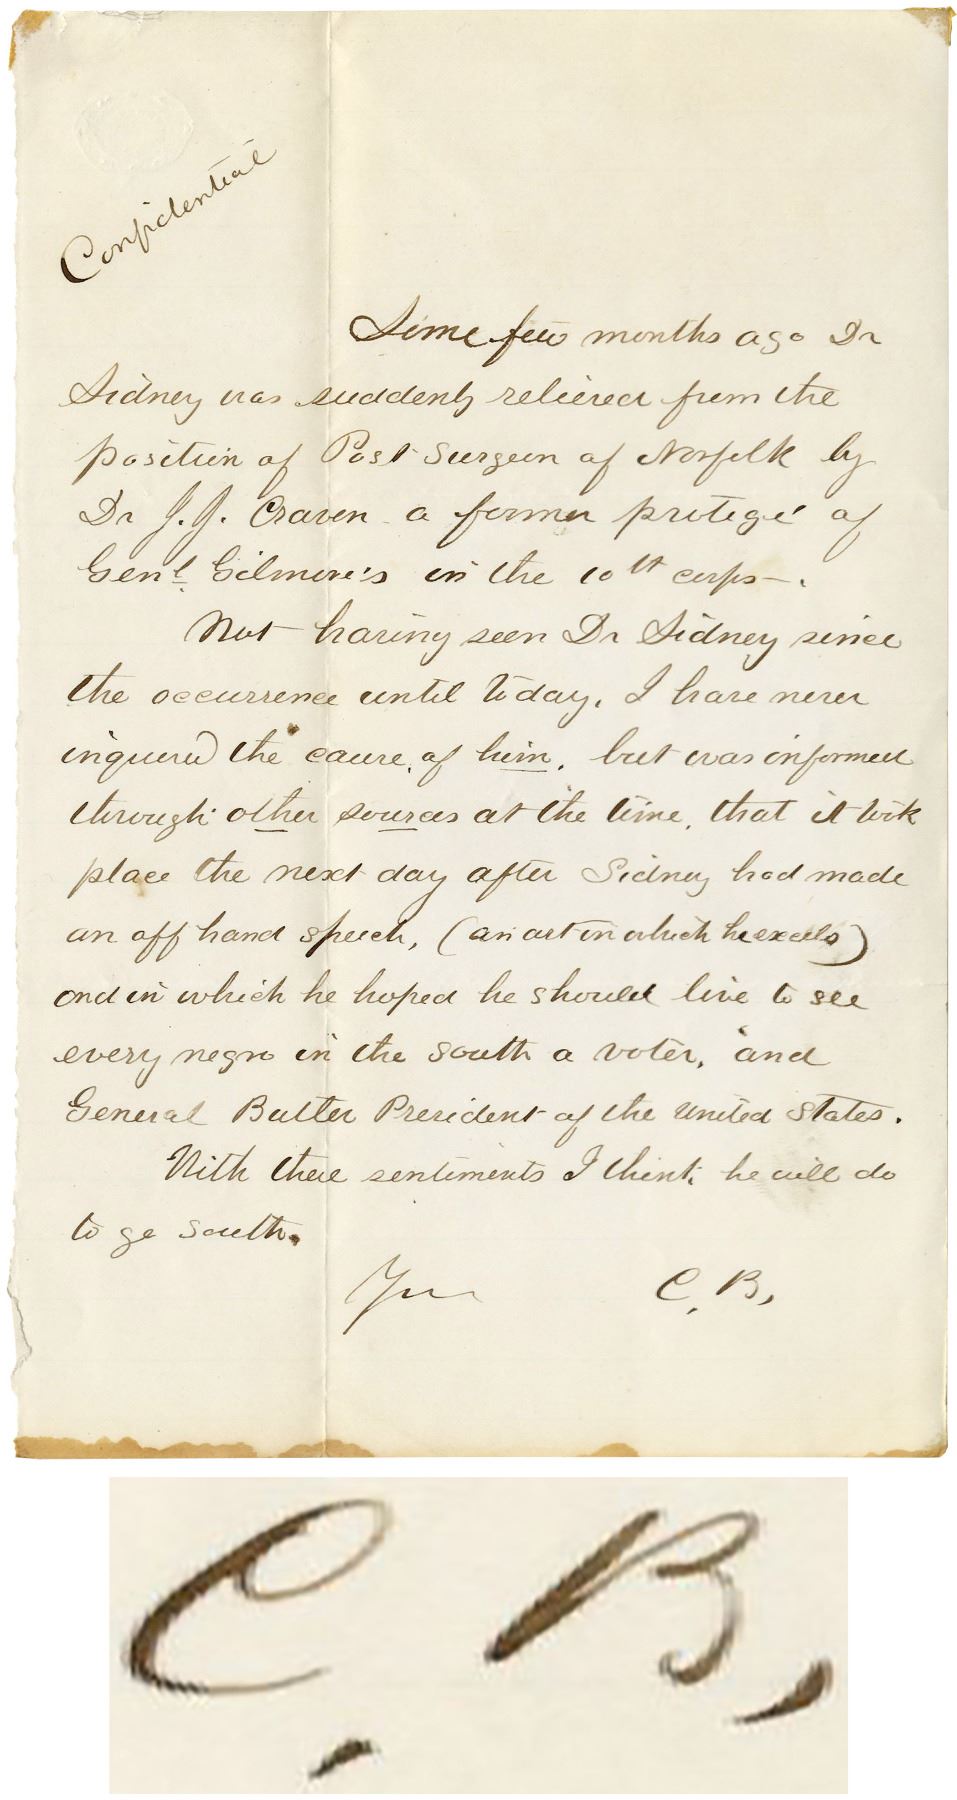 Confidential
Some few months ago Dr
Sidney was suddenly relieved from the
position of Post Surgeon of Norfolk by
Dr J. J. Craven a former protegé of
Genl. Gilmore's in the 10th corps—.
Not having seen Dr Sidney since
the occurrence until today, I have never
inquired the cause, of him, but was informed
through other sources at the time, that it took
place the next day after Sidney had made
an off hand speech, (an art in which he excells)
and in which he hoped he should live to see
every negro in the South a voter, and
General Butler President of the United States.
With these sentiments I think he will do
to go South.
C. B,
C. B,